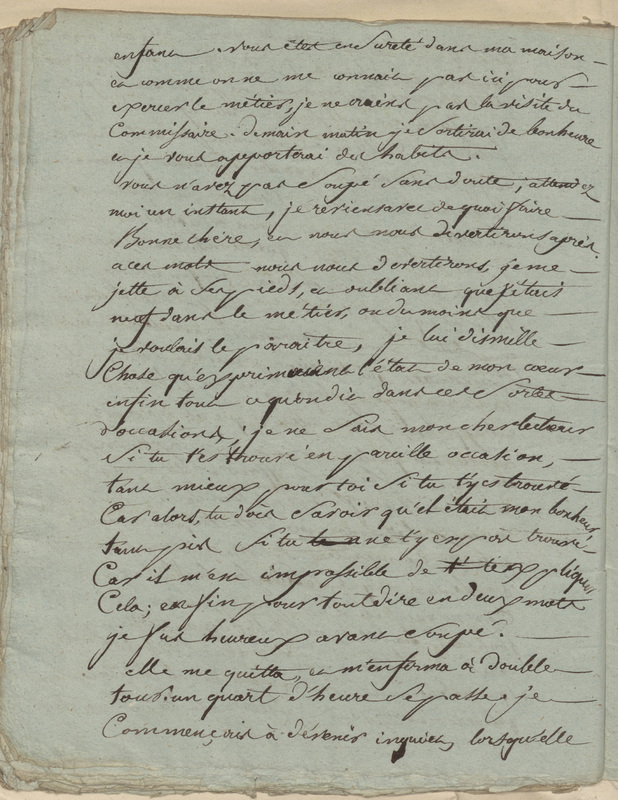 enfant. vous êtes en sureté dans ma maison
et comme on ne me connait pas ici pour
exercer le métier, je ne crains pas la visite du
Commissaire. demain matin je sortirai de bonheure
et je vous apporterai des habits.
vous n'avez pas soupé sans doute, attendez
moi un instant, je reviens avec de quoi faire
Bonne chère, et nous nous divertirons après.
a ces mots nous nous divertirons, je me
jette à ses pieds, et oubliant que j'étais
neuf dans le métier, ou du moins que
je voulais le paraître, je lui dis mille
Chose qu'exprimaient l'état de mon cœur
enfin tout ce qu'on dit dans ces sortes
d'occasions; je ne sais mon cher lecteur
si tu t'es trouvé en pareille occasion,
tant mieux pour toi si tu t'y es trouvé
Car alors, tu dois savoir quel était mon bonheur,
tant pis si tu ne t'y es pas trouvé
Car il m'est impossible de t'expliquer
Cela; enfin pour tout dire en deux mots
je fus heureux avant soupé.
elle me quitta, et m'enferma à double
tour. un quart d'heure se passe, je
Commençais à dévenir inquiet, lorsqu'elle